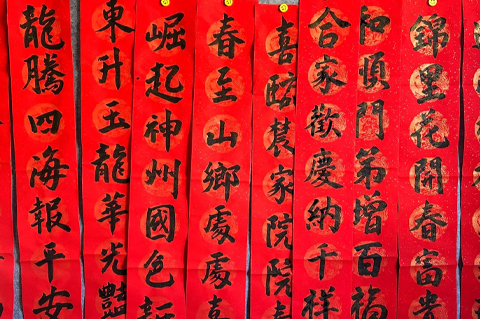 錦里花開春富貴
和順門第增百福
合家歡慶納千祥
喜臨農家院院
春至山鄉處處喜
崛起神州國色新
東升玉龍華光豔
龍騰四海報平安